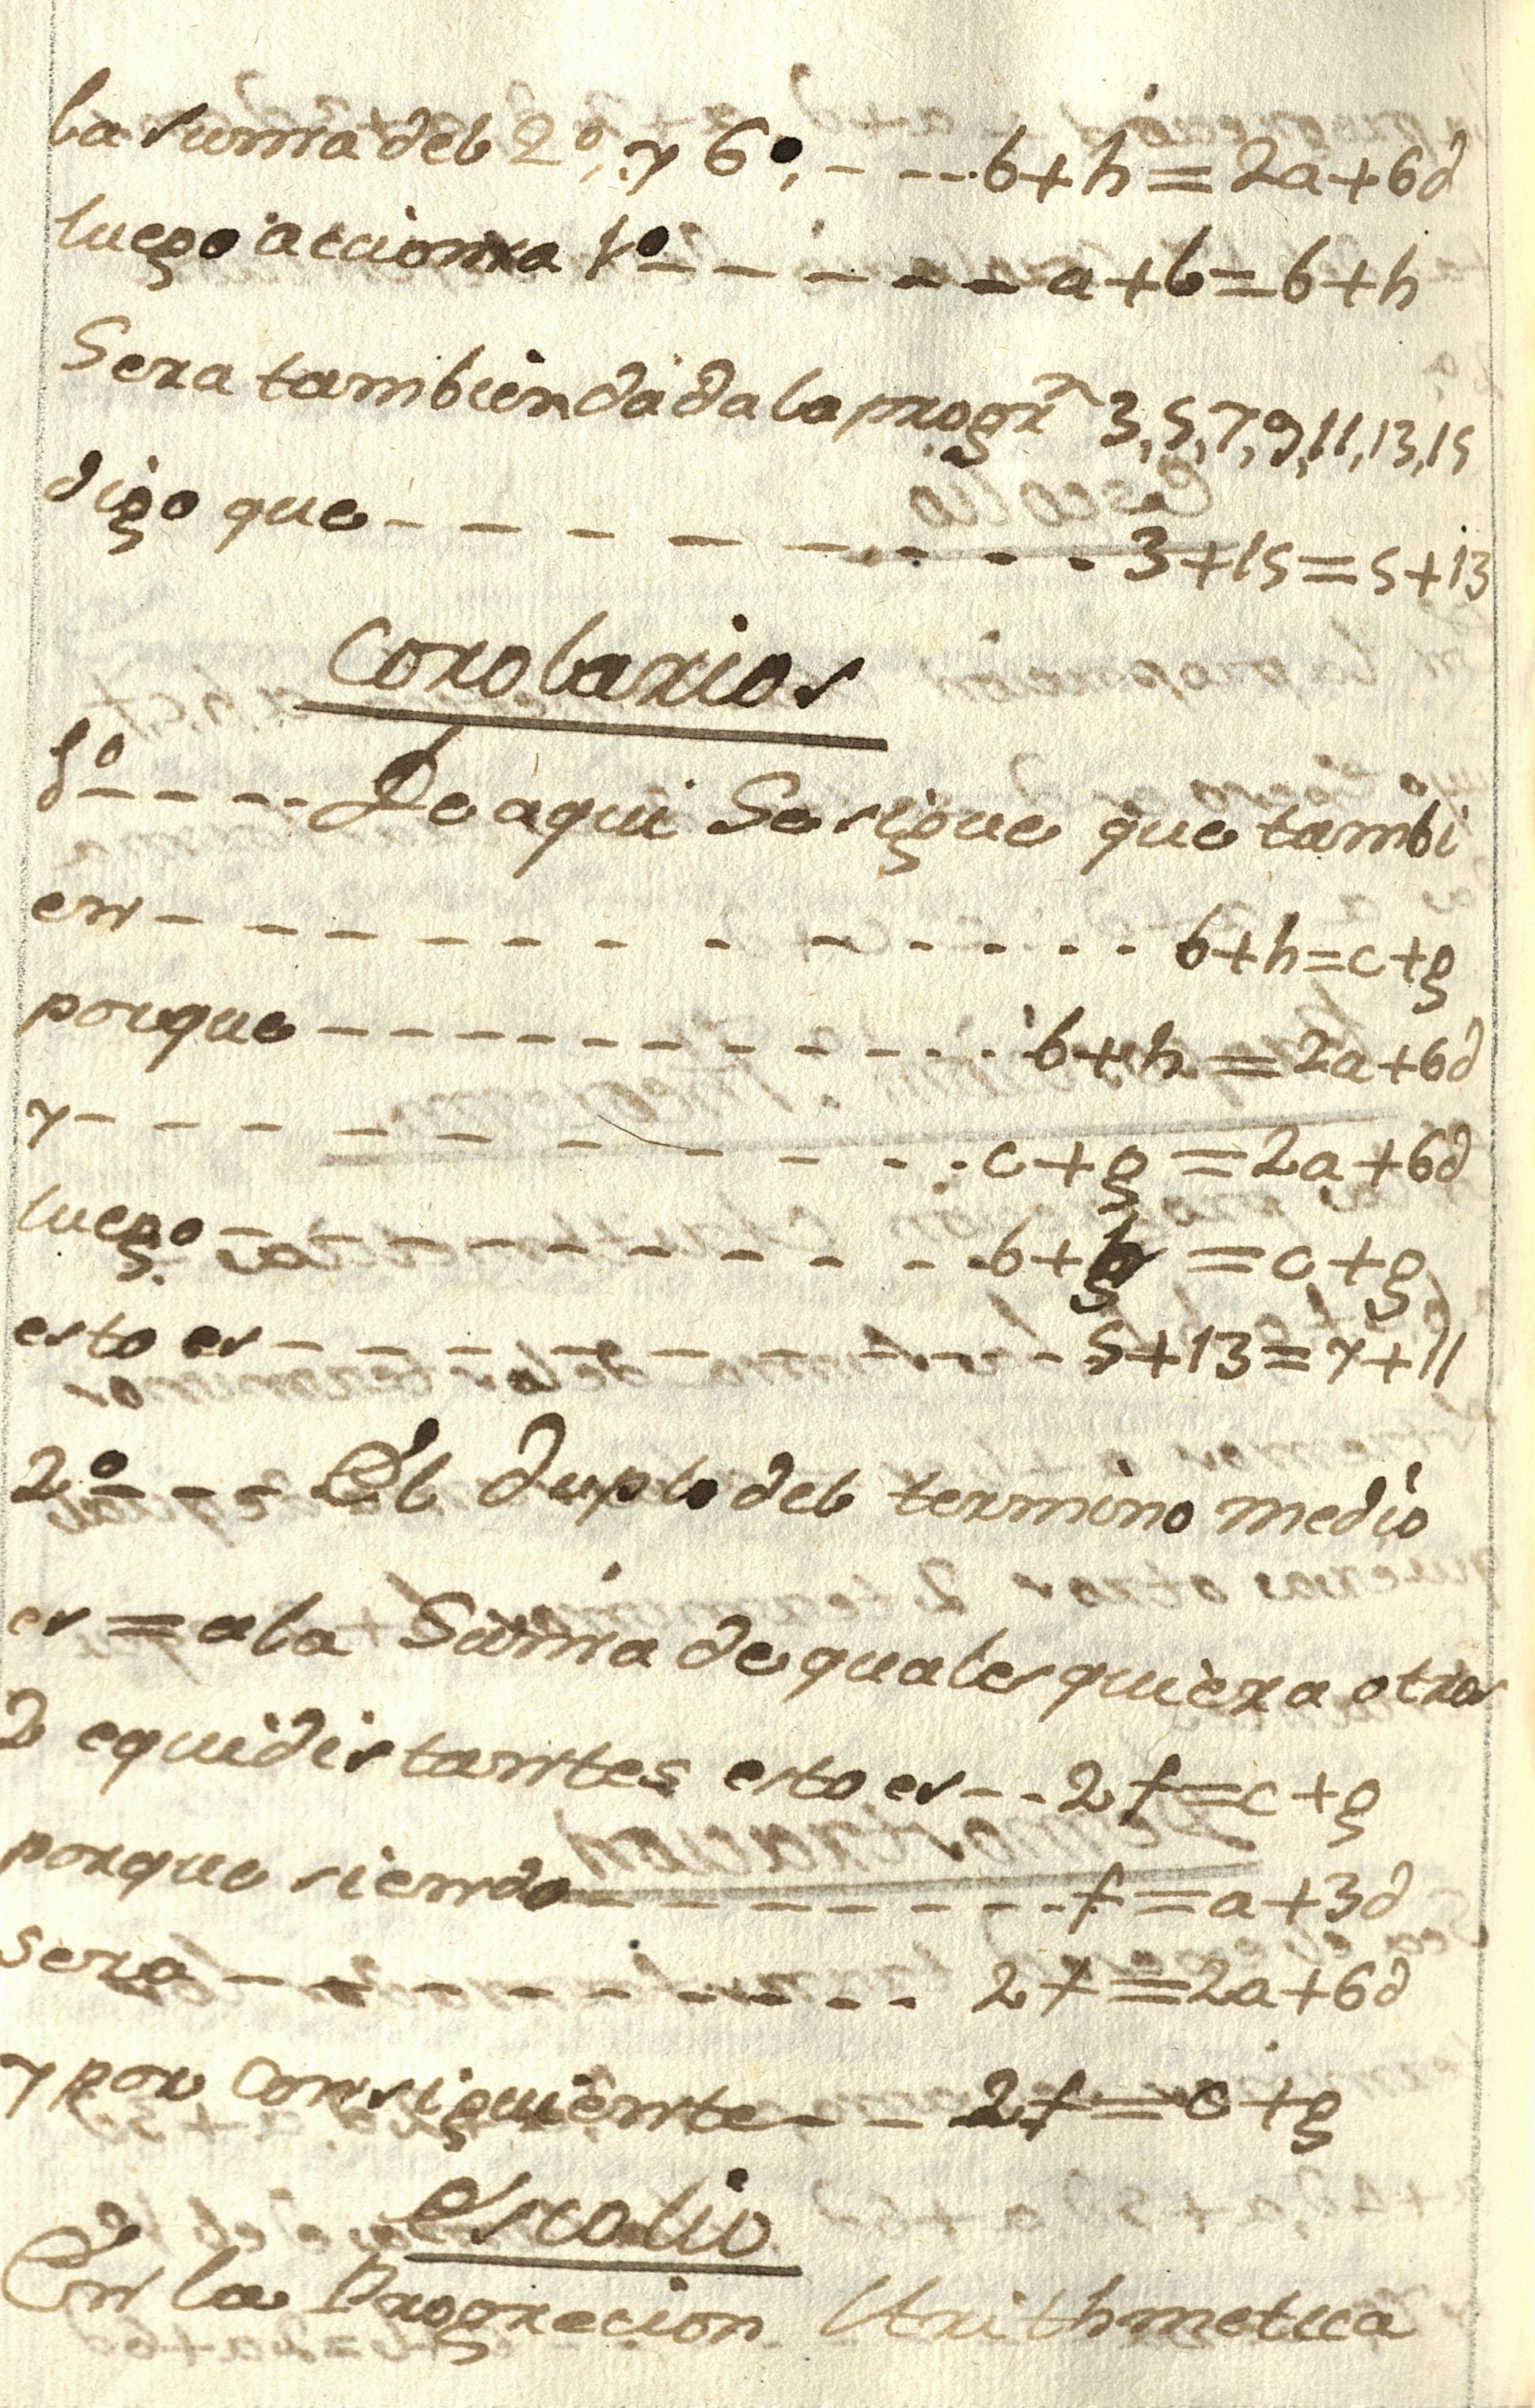 la suma del 2º, y 6º, - - - b+h = 2a+6d
luego accioma 1º - - - - - - a+b=b+h
Sera tambien dada la progrⁿ 3,5,7,9,11,13,15
digo que - - - - - - - - - 3+15=5+13
Corolarios
1º - - - - De aqui Se sigue que tambi
en - - - - - - - - - - - - - b+h=c+g
porque - - - - - - - - - - - b+h = 2a+6d
y - - - - - - - - - - - c+g = 2a+6d
luego - - - - - - - - - - b+h = c+g
esto es - - - - - - - - - - 5+13=7+11
2º - - - El duplo del termino medio
es = a la Suma de qualesquiera otros
2 equidistantes esto es - - - 2f=c+g
porque siendo - - - - - - - f=a+3d
sera - - - - - - - - - 2f=2a+6d
y por consiguiente - - - 2f=c+g
Escolio
En la Progrecion Arithmetica